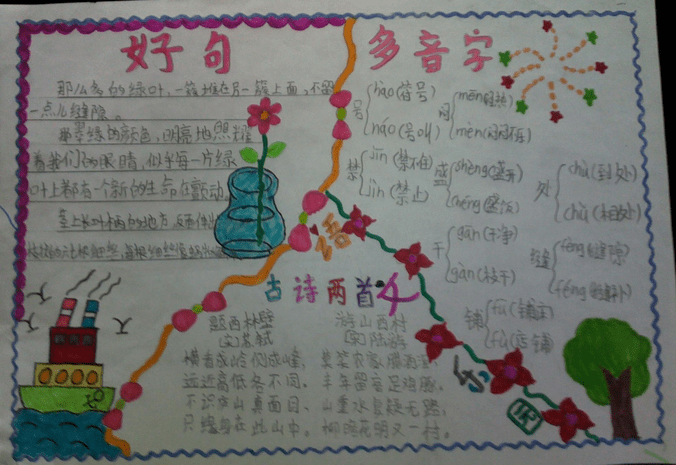 好句
那么多的绿叶，一簇堆在另一簇上面，不留
一点儿缝隙。
翠绿的颜色，明亮地照耀
着我们的眼睛，似乎每一片绿
叶上都有一个新的生命在颤动
茎上长叶柄的地方，反面伸出
多音字
号
hào(符号)
háo(号叫)
闷
mēn(闷热)
mèn(闷闷不乐)
禁
jīn(禁不住)
jìn(禁止)
盛
shèng(盛开)
chéng(盛饭)
处
chù(到处)
chǔ(相处)
干
gān(干净)
gàn(枝干)
缝
fèng(缝隙)
féng(缝补)
铺
pū(铺
pù(店铺
语
文
古诗两首
题西林壁
(宋)苏轼
横看成岭侧成峰，
远近高低各不同。
不识庐山真面目，
只缘身在此山中。
游山西村
(宋)陆游
莫笑农家腊酒浑，
丰年留客足鸡豚。
山重水复疑无路，
柳暗花明又一村。